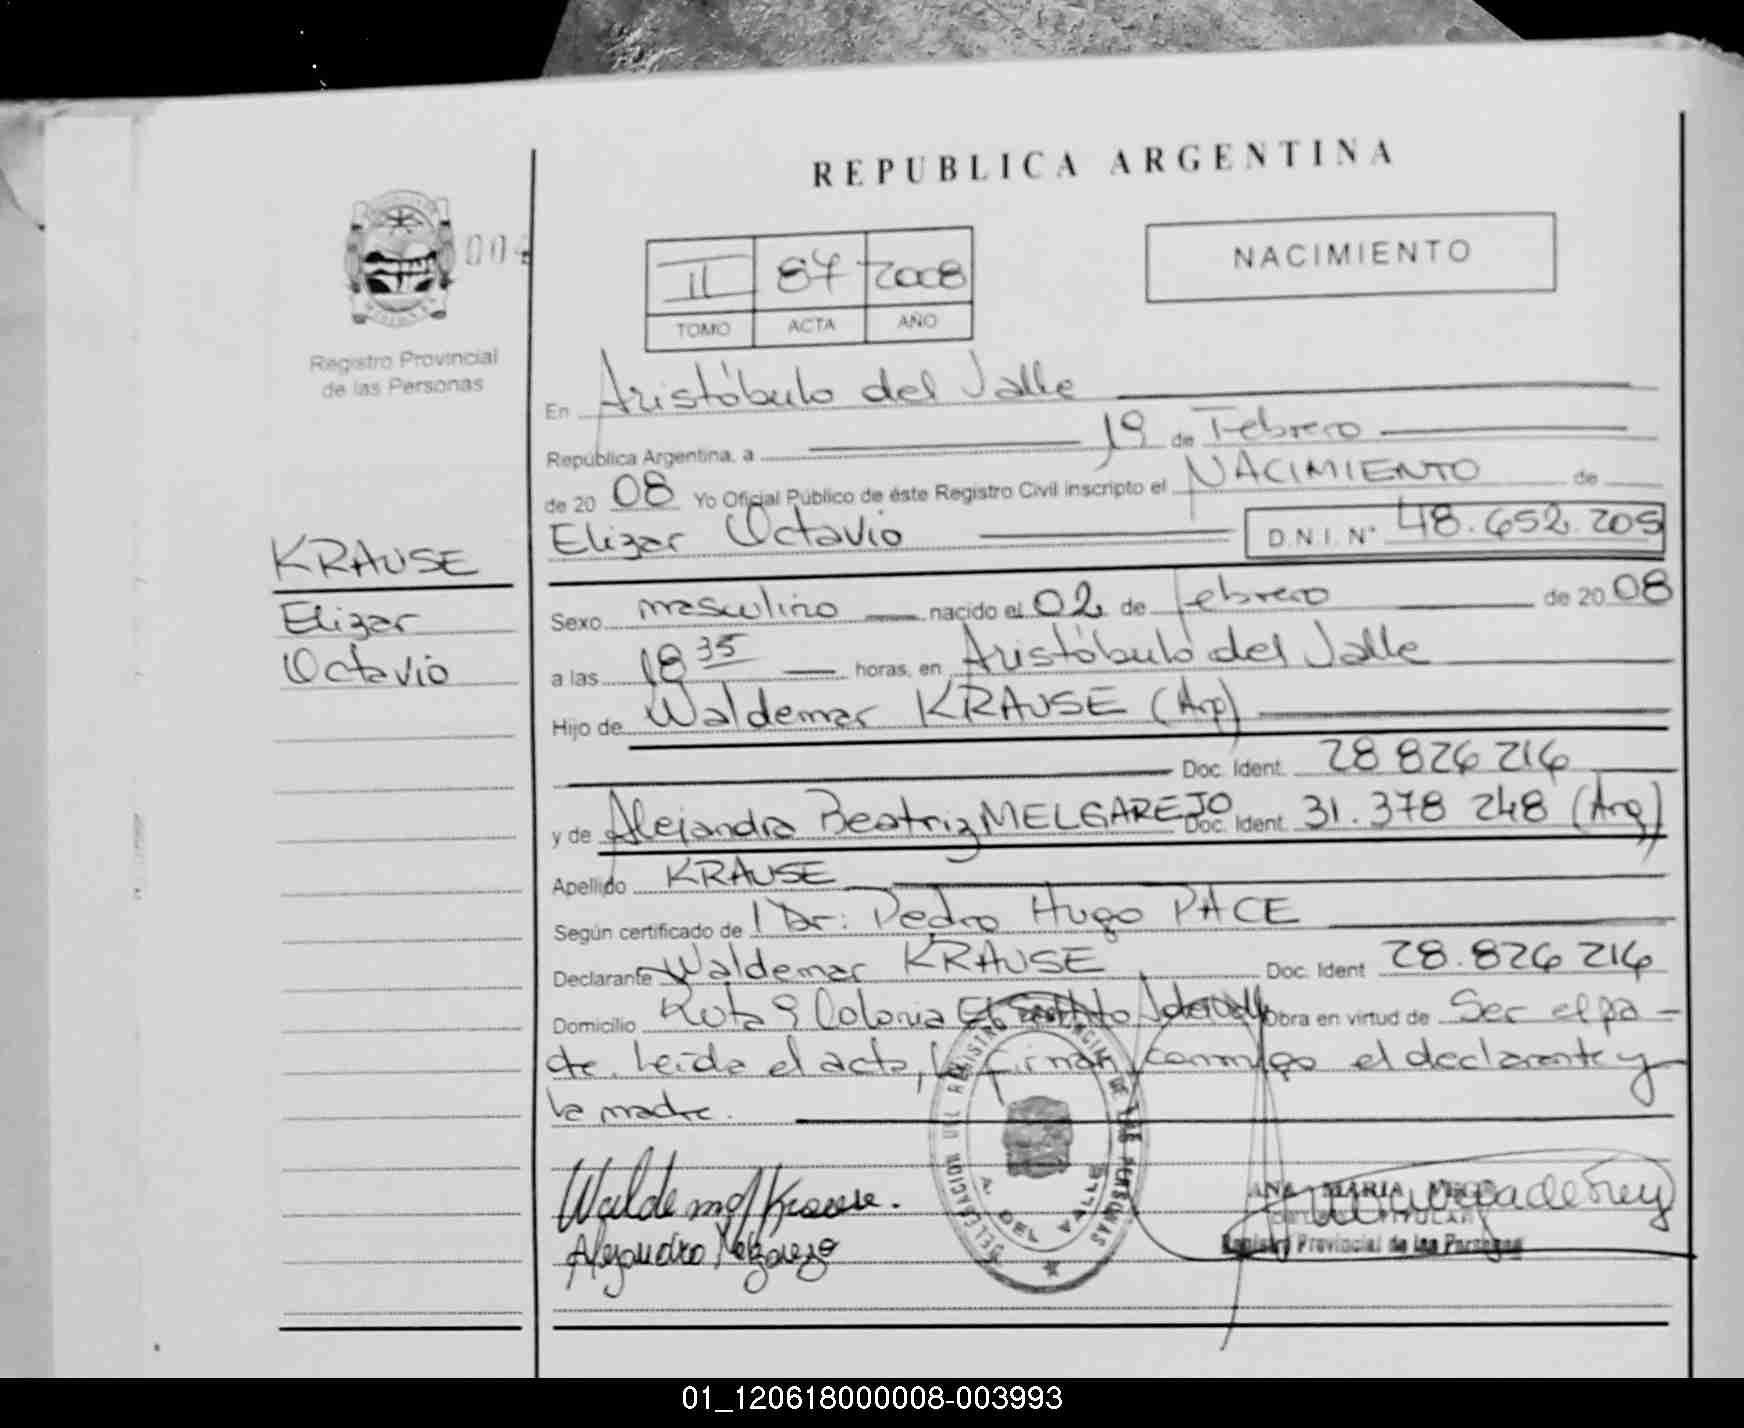 REPUBLICA ARGENTINA
004
II 87 2008
TOMO ACTA AÑO
NACIMIENTO
Registro Provincial
de las Personas
En Aristóbulo del Valle
República Argentina, a 19 de Febrero
de 2008 Yo Oficial Público de éste Registro Civil inscripto el NACIMIENTO de
Elizar Octavio D.N.I. Nº 48.652.205
KRAUSE
Elizar
Octavio
Sexo masculino nacido el 02 de febrero de 2008
a las 18 35 horas, en Aristóbulo del Valle
Hijo de Waldemar KRAUSE (Arg)
Doc. Ident. 28 826 216
y de Alejandra Beatriz MELGAREJO Doc. Ident. 31.378 248 (Arg)
Apellido KRAUSE
Según certificado de l Dr: Pedro Hugo PACE
Declarante Waldemar KRAUSE Doc. Ident 28.826 216
Domicilio Ruta 9 Colonia Obra en virtud de Ser el pa-
dre. Leída el acta, la firman conmigo el declarante y
la madre.
Waldemar Krause.
Alejandra Melgarejo
DELEGACION DEL REGISTRO PROVINCIAL DE LAS PERSONAS
A. DEL VALLE
ANA MARIA
TITULAR
Registro Provincial de las Personas
01_120618000008-003993